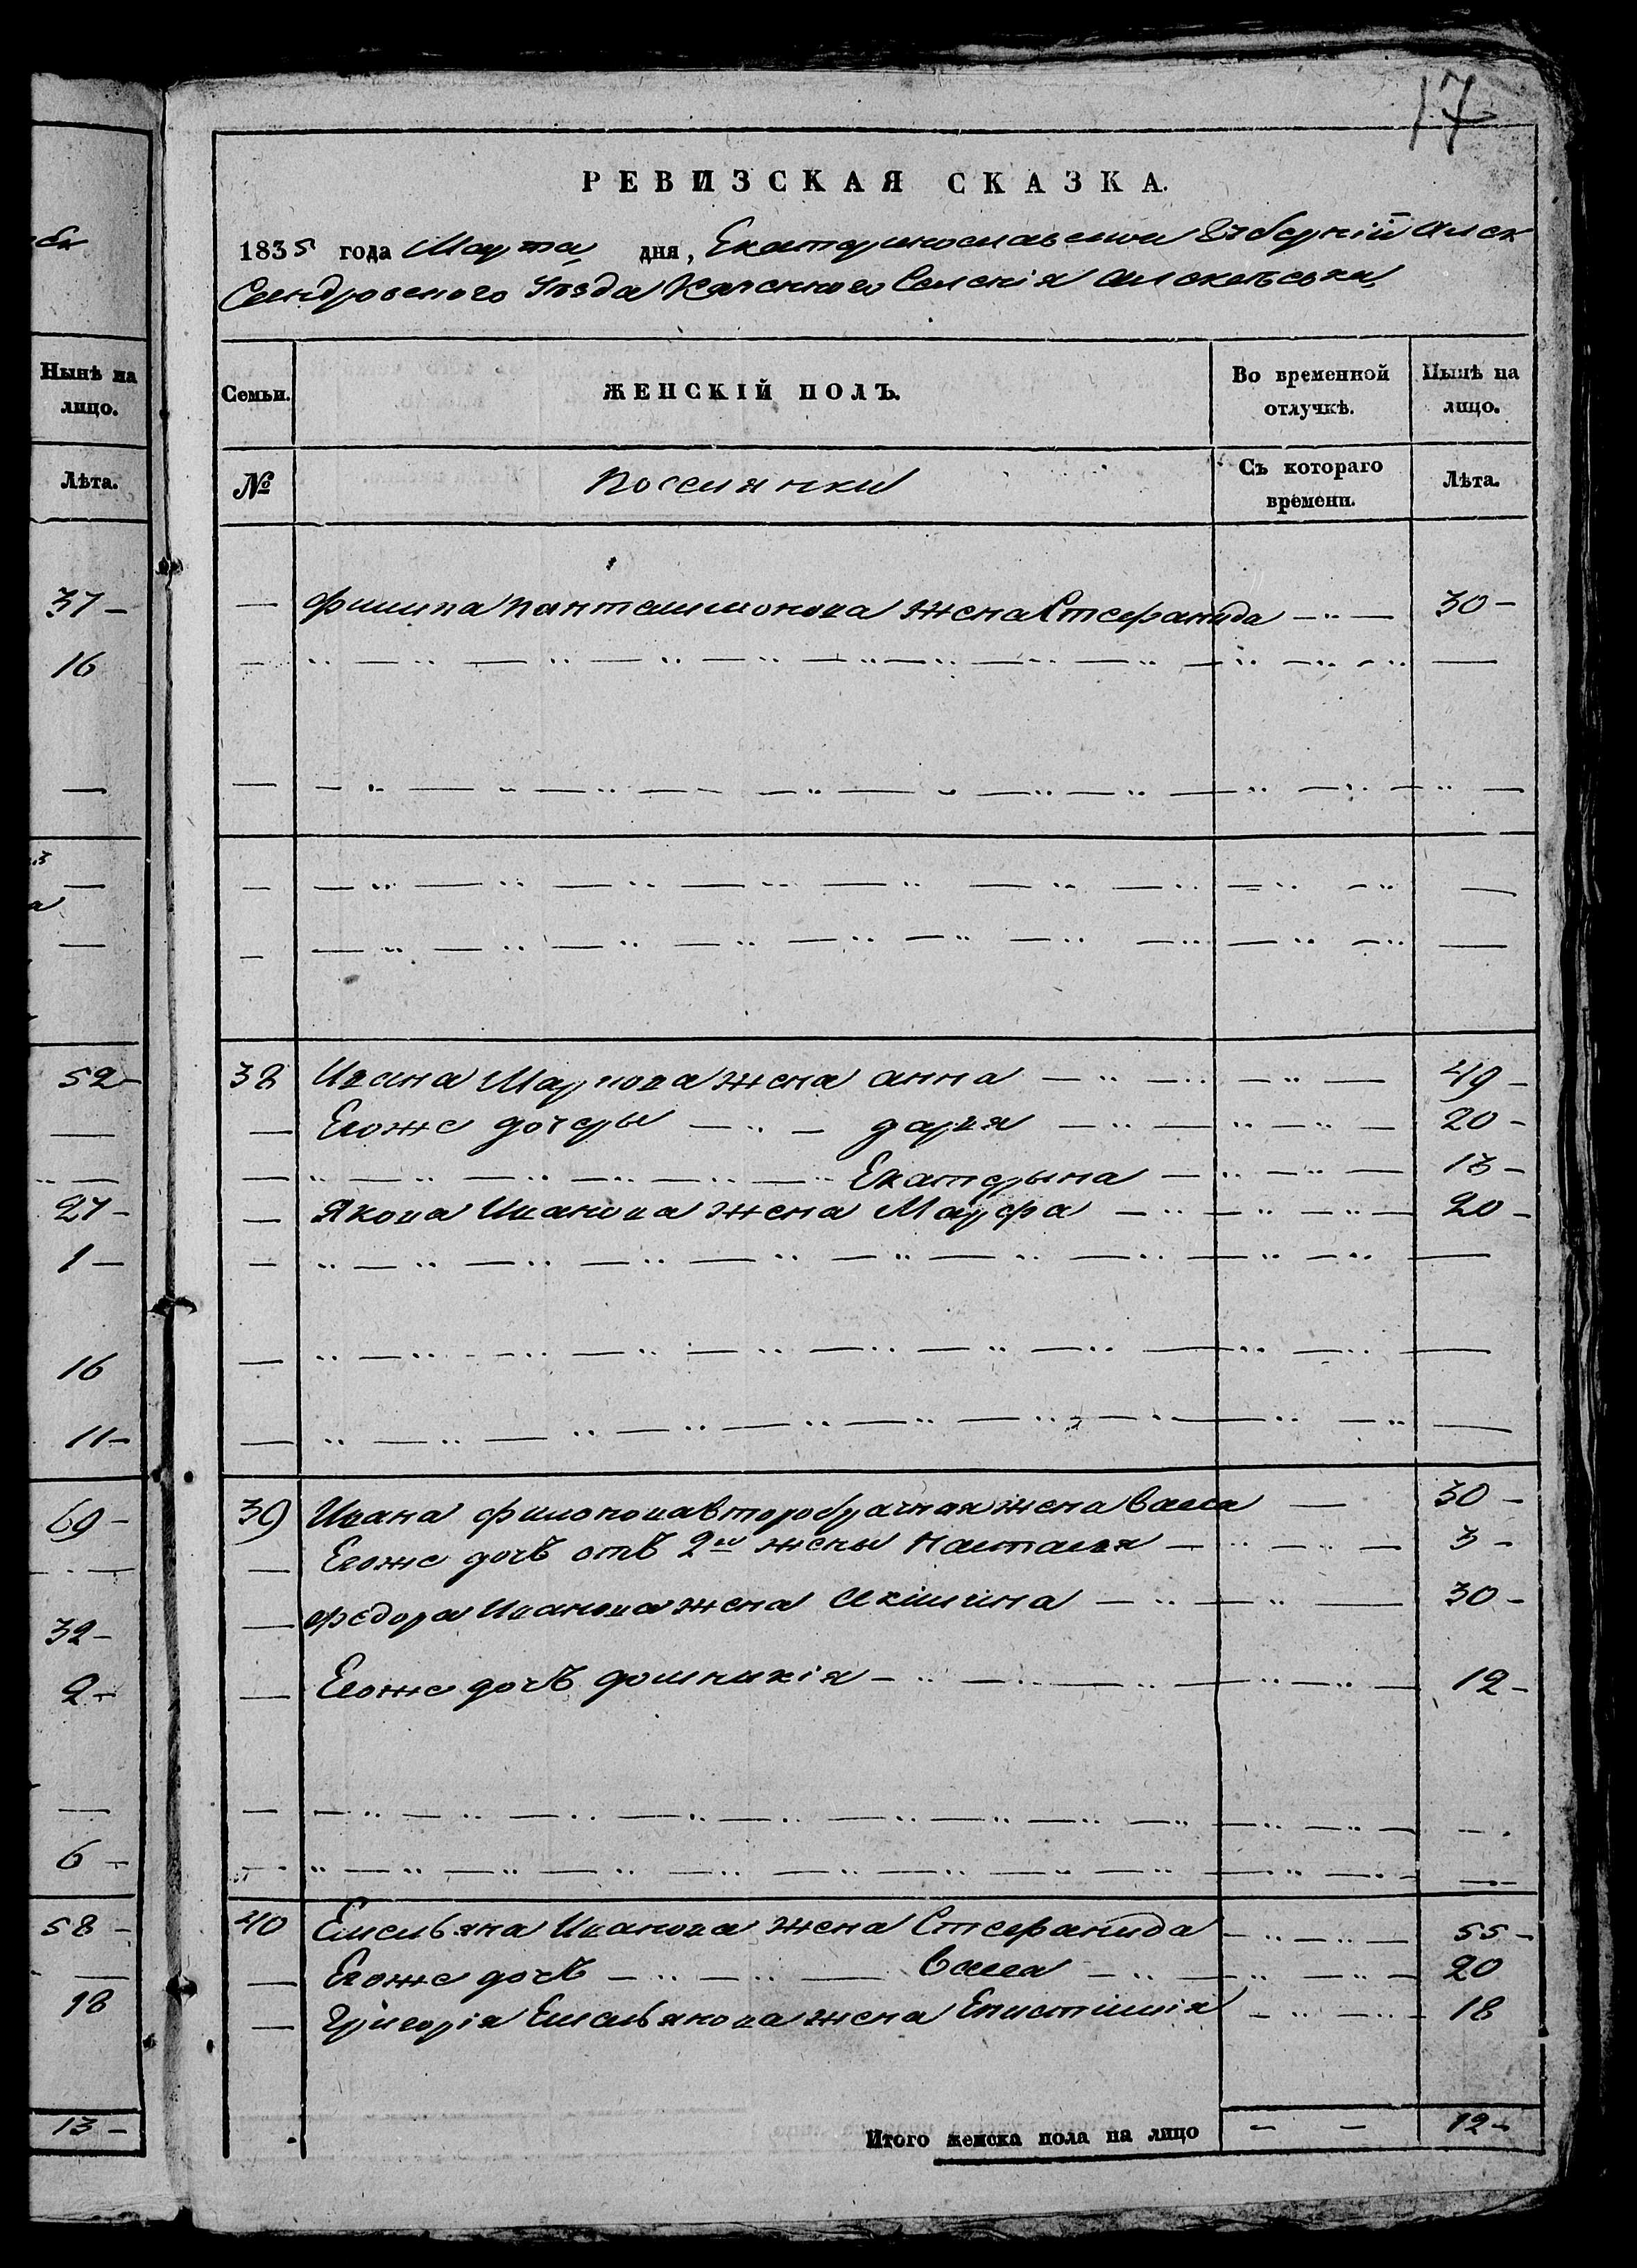 17
РЕВИЗСКАЯ СКАЗКА.
1835 года Марта дня, Екатеринославской Губерній Алек
Сандровского Уезда
Нынѣ на лицо.
Лѣта.
37 –
16
52 –
27 –
1 –
16
11 –
69 –
32 –
2 –
6 –
58 –
18
13 –
Семьи. ЖЕНСКІЙ ПОЛЪ. Во временной отлучкѣ. Нынѣ на лицо.
№ Поселянки Съ котораго времени. Лѣта.
Филипа Пантелимонова жена Стефанида 30 –
38 Ивана Маркова жена анна 49 –
Егоже дочеры даря 20 –
Екатерына 13 –
Якова Иванова жена Марфа 20 –
39 Ивана Филонова второбрачная жена Васса 30 –
Егоже дочѣ отѣ 2й жены Насталя 3 –
Федора Иванова жена 30 –
Егоже дочѣ домникія 12 –
40 Емельяна Иванова жена Стефанида 55 –
Егоже дочѣ Васса 20
Григорія Емельянова жена Епистимія 18
Итого женска пола на лицо – – 12 –